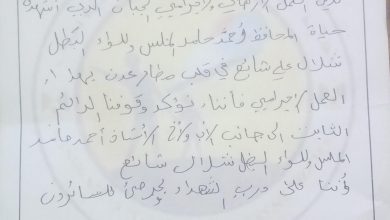 العمل الإرهابي والإجرامي الجبان الذي استهدف
حياة المحافظ أحمد حامد لملس واللواء البطل
شلال علي شائع في قلب مطار عدن بهذا
العمل الإجرامي فأننا نؤكد وقوفنا الدائم
الثابت الى جانب الأب والأخ الأستاذ أحمد حامد
لملس واللواء البطل شلال شائع
وأننا على درب الشهداء والجرحى لسائرون